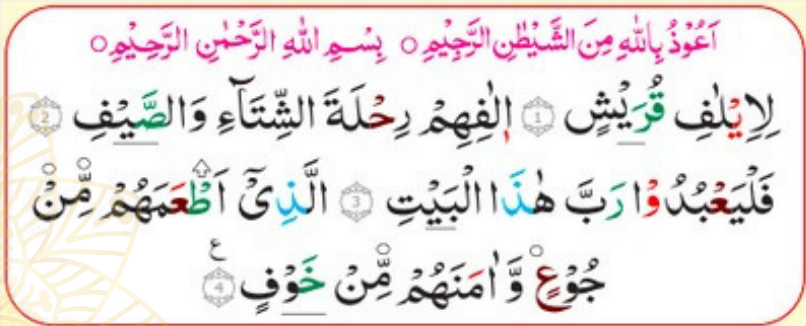 اَعُوْذُ بِاللّٰهِ مِنَ الشَّيْطٰنِ الرَّجِيْمِ ○ بِسْمِ اللّٰهِ الرَّحْمٰنِ الرَّحِيْمِ ○
لِاِيْلٰفِ قُرَيْشٍ ١ اٖلٰفِهِمْ رِحْلَةَ الشِّتَآءِ وَالصَّيْفِ ٢
فَلْيَعْبُدُوْا رَبَّ هٰذَا الْبَيْتِ ٣ الَّذِيْٓ اَطْعَمَهُمْ مِّنْ
جُوْعٍ وَّاٰمَنَهُمْ مِّنْ خَوْفٍ ٤ ع